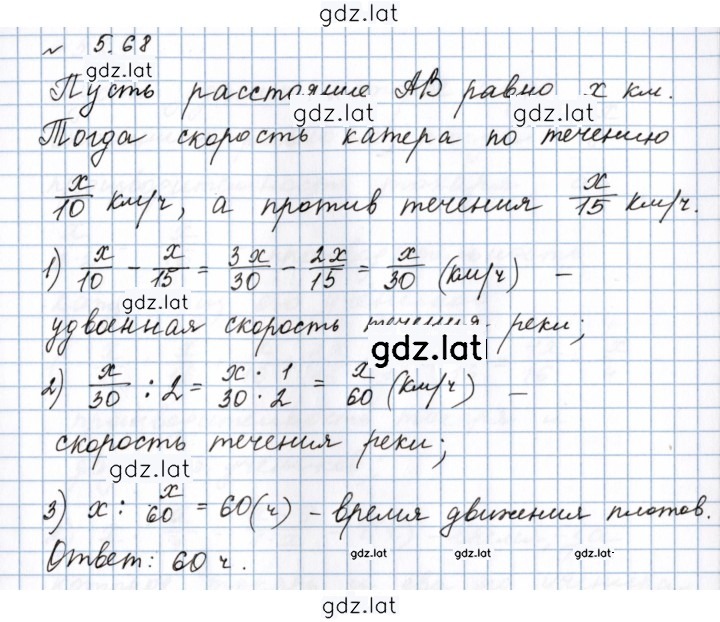 gdz.lat
№ 5.68
gdz.lat
Пусть расстояние АВ равно x км.
gdz.lat gdz.lat
Тогда скорость катера по течению
x/10 км/ч, а против течения x/15 км/ч.
1) x/10 - x/15 = 3x/30 - 2x/15 = x/30 (км/ч) –
gdz.lat
удвоенная скорость течения реки;
gdz.lat
2) x/30 : 2 = x · 1/30 · 2 = x/60 (км/ч) –
скорость течения реки;
gdz.lat
3) x : x/60 = 60 (ч) – время движения плотов.
Ответ: 60 ч.
gdz.lat gdz.lat gdz.lat
gdz.lat